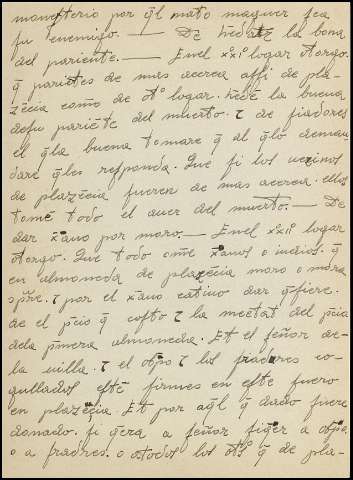 monesterio por q̃l mato maguer sea
su enemigo. — De la bona
del pariente. — Enel xºxiº logar otorgo.
q̃ parietes de mas acerca assi de pla-
zẽcia como de otº logar. hede la buena
desu pariẽte del muerto. τ de fiadores
el q̃la buena tomare q̃ al q̃lo deman
dare q̃les responda. Que si los uezinos
de plazẽcia fueren de mas acerca. ellos
tomẽ todo el auer del muerto. — De
dar xºano por moro. — Enel xºxiiº logar
otorgo. Que todo ome xºanos o indios. q̃
en almoneda de plazẽcia moro o mora
τ por el xºano catiuo dar q̃siere.
de el p̃cio q̃ costo τ la meetat del p̃cio
dela p̃mera almoneda. Et el señor de-
la uilla. τ el obpo τ los fradres co-
gullados estẽ firmes en este fuero
en plazẽçia. Et por aq̃l q̃ dado fuere
donado. si q̃era a señor siq̃er a obpo.
o a fradres. o atodos los otºs q̃ de pla-